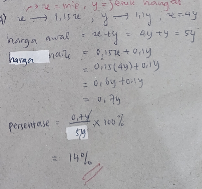 x = mie, y = jeruk hangat
x → 1,15x, y → 1,1y, x = 4y
harga awal = x + y = 4y + y = 5y
harga naik = 0,15x + 0,1y
= 0,15(4y) + 0,1y
= 0,6y + 0,1y
= 0,7y
Persentase = 0,7y/5y × 100%
= 14%